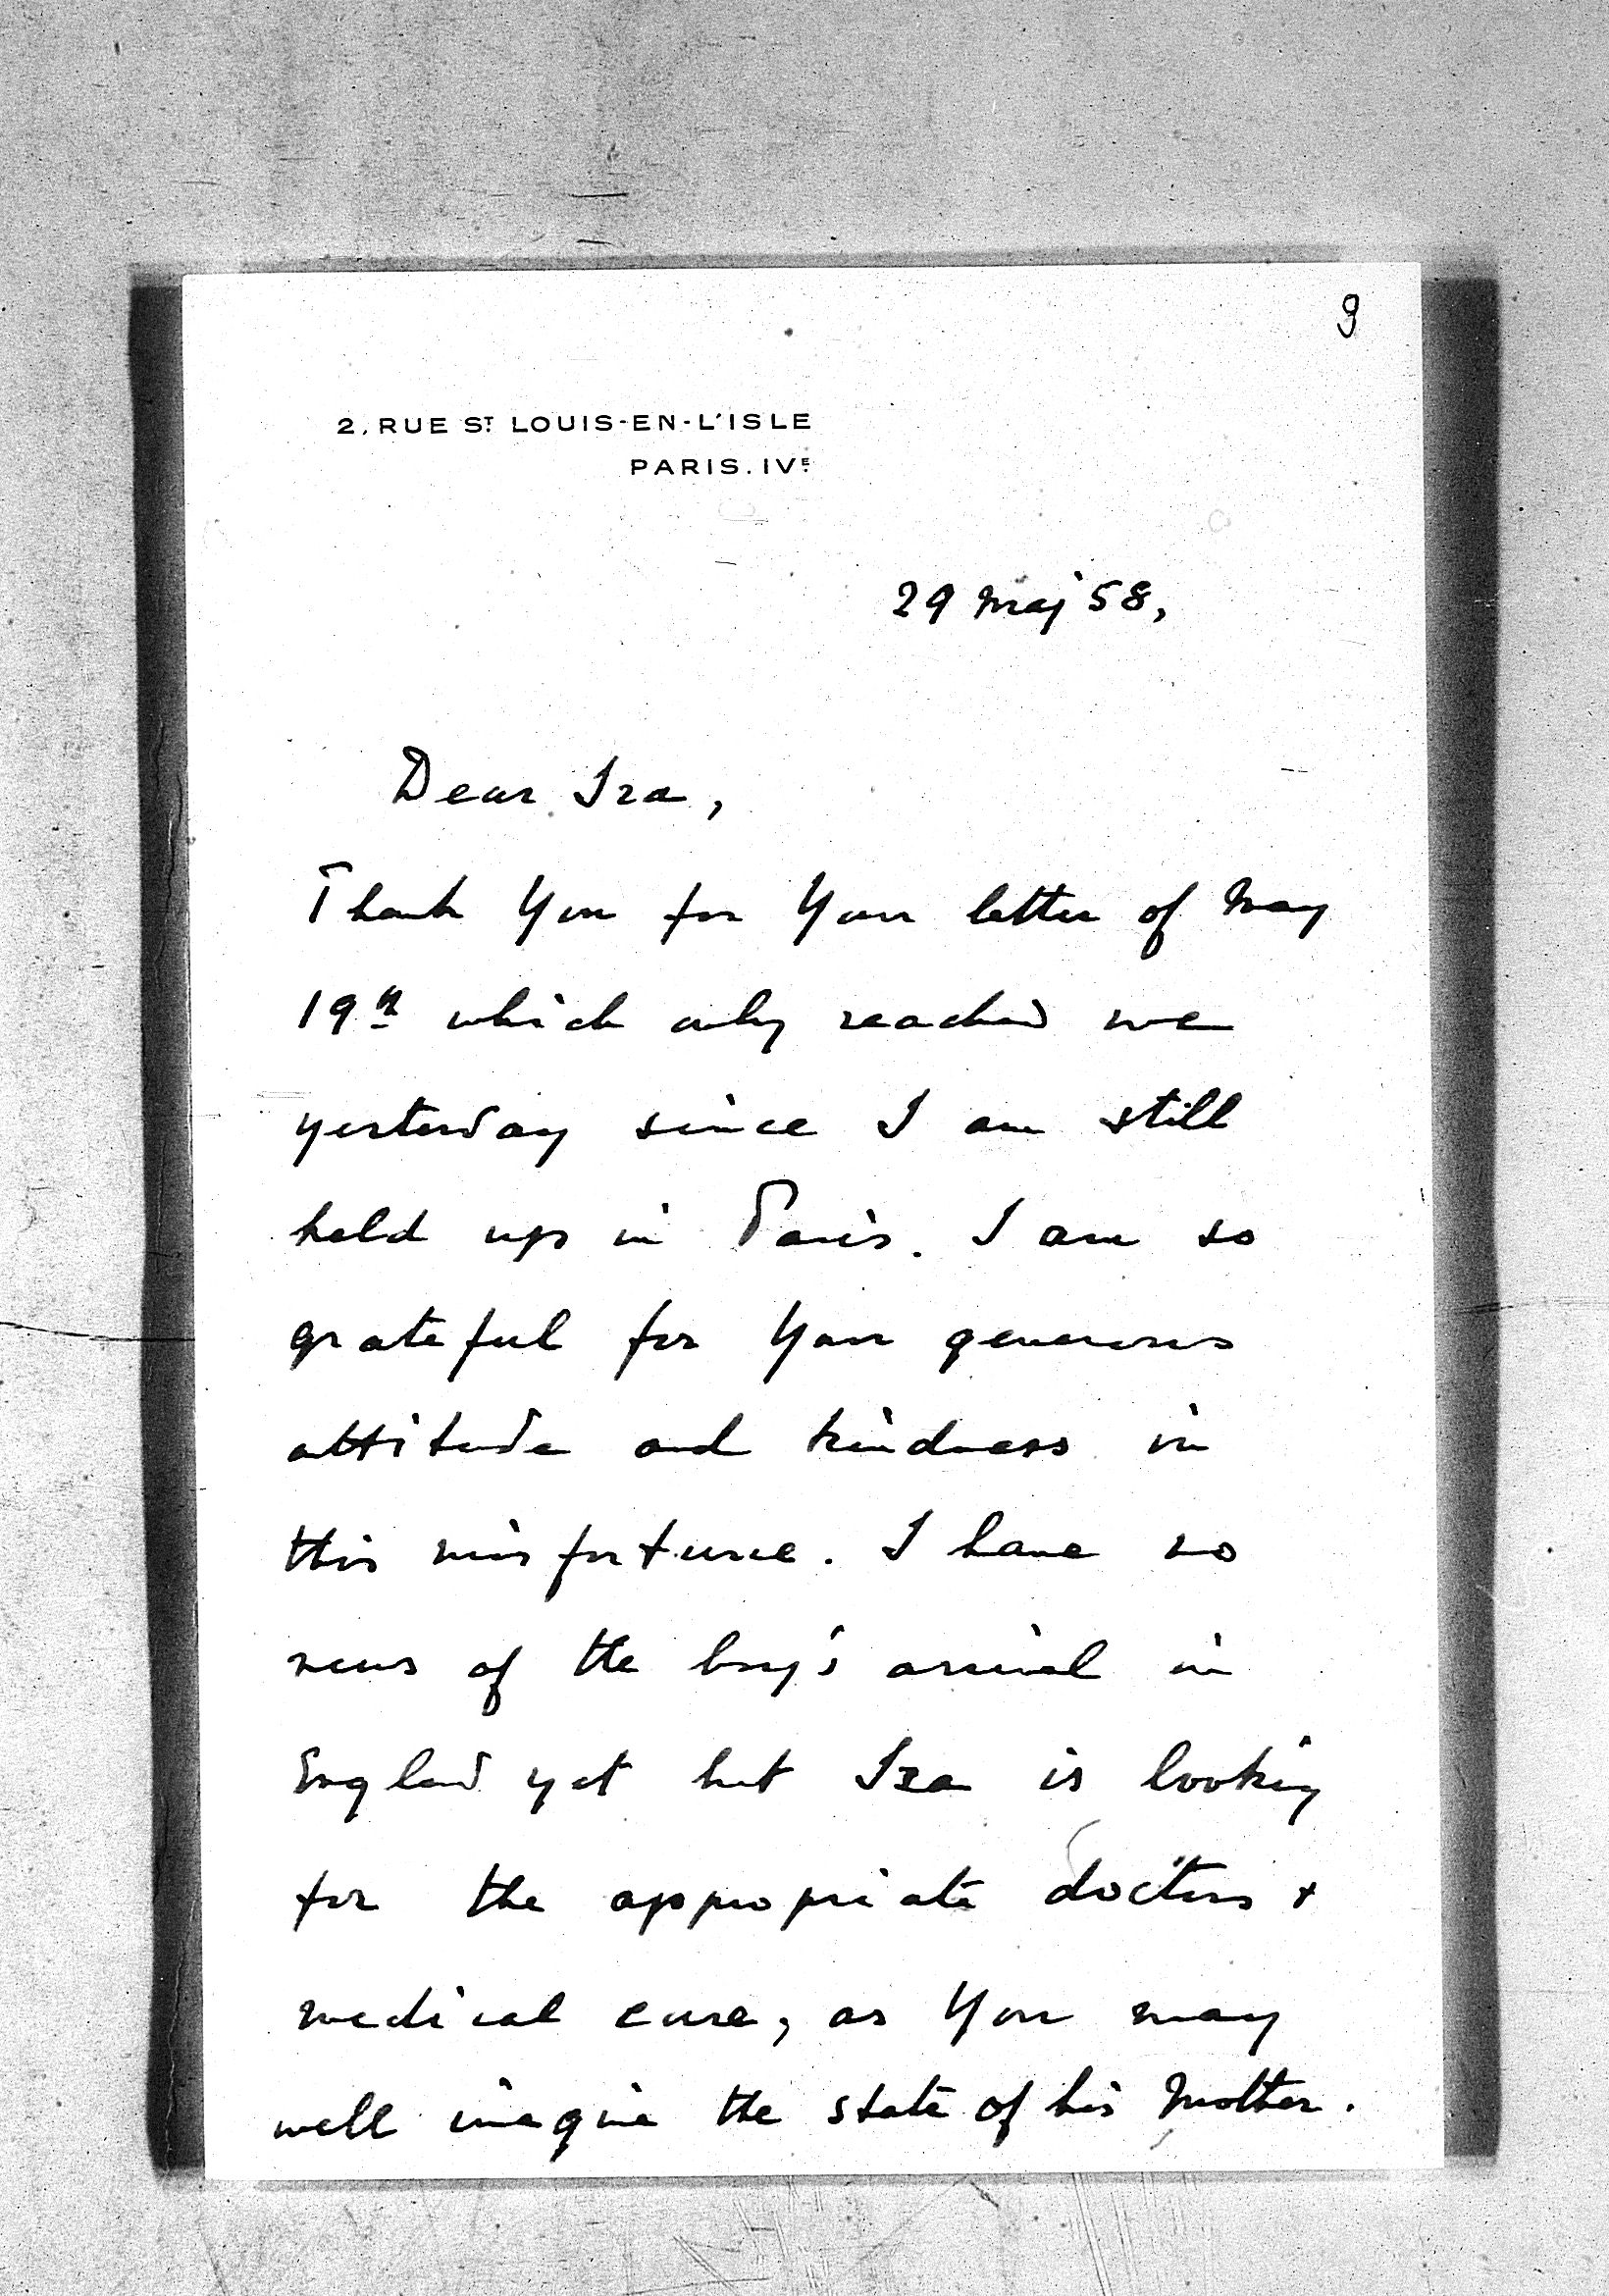 9
2, RUE ST LOUIS-EN-L'ISLE
PARIS. IVE
29 Maj 58,
Dear Iza,
Thank You for Your letter of May
19th which only reached me
yesterday since I am still
held up in Paris. I am so
grateful for Your generous
attitude and kindness in
this misfortune. I have no
news of the boy's arrival in
England yet but Iza is looking
for the appropriate doctors +
medical care, as You may
well imagine the state of his Mother.